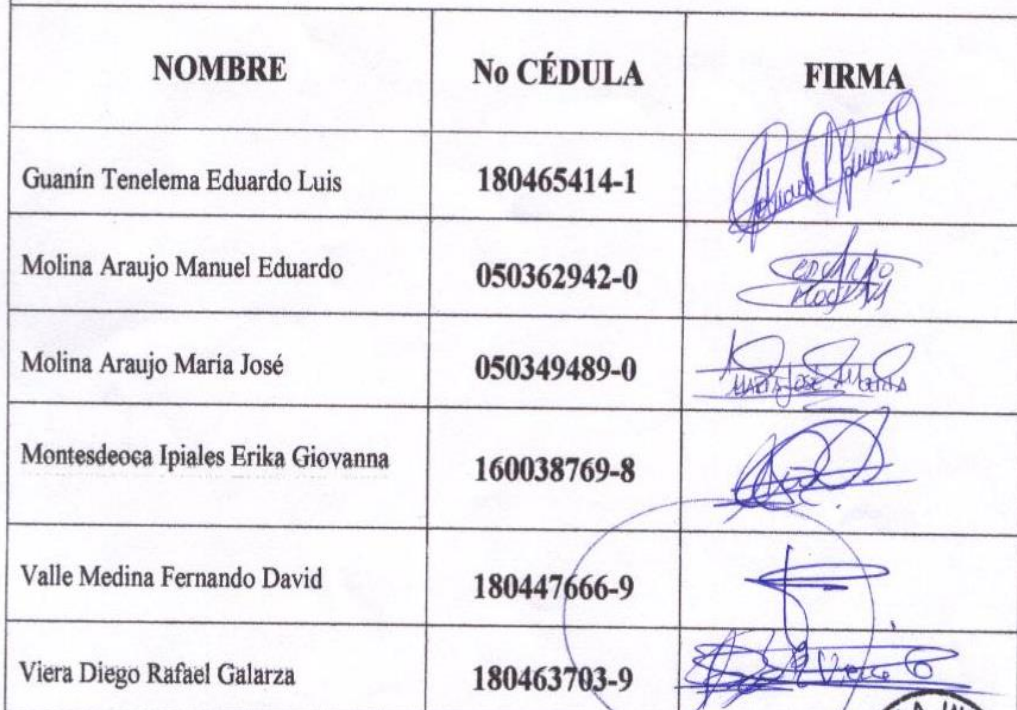 NOMBRE No CÉDULA FIRMA
Guanín Tenelema Eduardo Luis 180465414-1
Molina Araujo Manuel Eduardo 050362942-0 EDUARDO
MOLINA
Molina Araujo María José 050349489-0 MARIA JOSÉ MOLINA
Montesdeoca Ipiales Erika Giovanna 160038769-8
Valle Medina Fernando David 180447666-9
Viera Diego Rafael Galarza 180463703-9